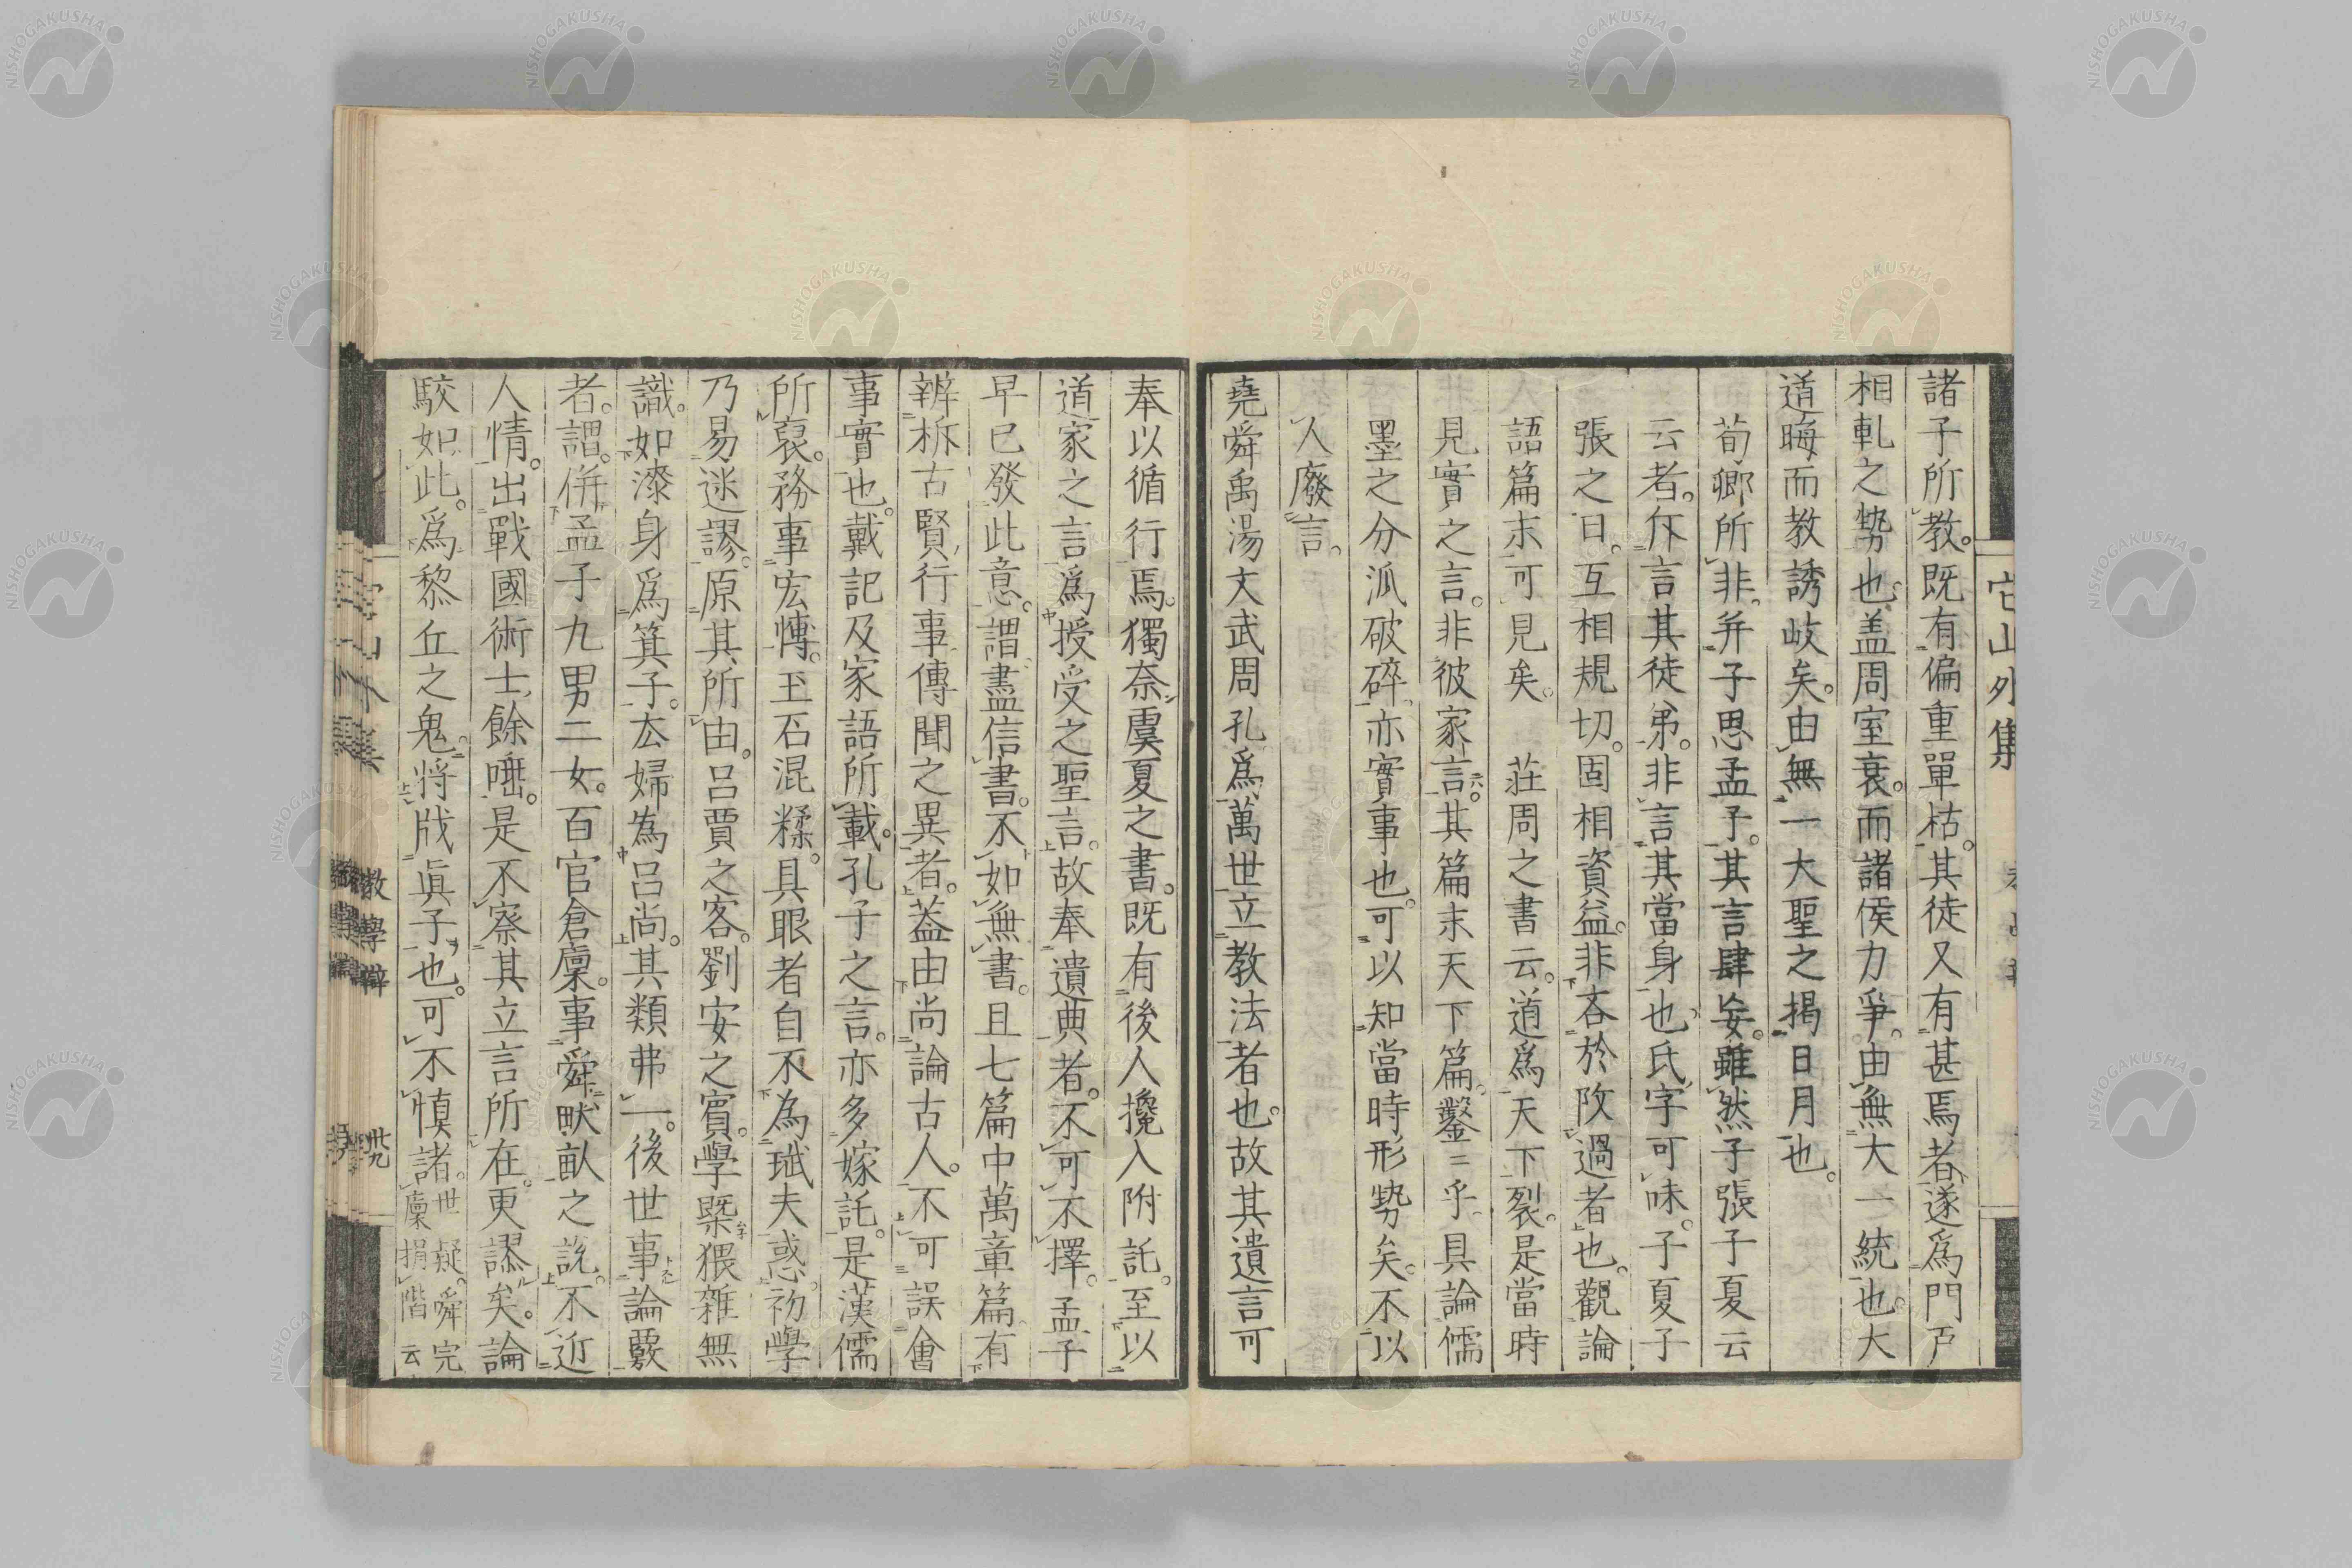 諸子所教。既有偏重單枯。其徒又有甚焉者、遂爲門戸
相軋之勢也。盖周室衰。而諸侯力爭。由無大一統也。大
道晦而教誘岐矣。由無一大聖之揭日月也。
荀卿所非。并子思孟子。其言肆妄。雖然子張子夏云
云者。斥言其徒弟。非言其當身也。氏字可味。子夏子
張之曰。互相規切。固相資益。非吝於攺過者也。觀論
語篇末可見矣。 莊周之書云。道爲天下裂。是當時
見實之言。非彼家言。其篇末天下篇。鑿〻乎。具論儒
墨之分派破碎。亦實事也。可以知當時形勢矣。不以
人廢言。
堯舜禹湯文武周孔爲萬世立教法者也。故其遺言可
奉以循行焉。獨奈虞夏之書。既有後人攙入附託。至以
道家之言爲授受之聖言。故奉遺典者。不可不擇。孟子
早已發此意。謂盡信書。不如無書。且七篇中萬章篇有
辨柝古賢行事傳聞之異者。葢由尚論古人。不可誤會
事實也。戴記及家語所載。孔子之言。亦多嫁託。是漢儒
所裒。務事宏博。玉石混糅。具眼者自不為珷夫惑。初學
乃易迷謬。原其所由。呂賈之客。劉安之賓。學槩猥雜無
識。如漆身爲箕子。厺婦為呂尚。其類弗一。後世事論覈
者。謂併孟子九男二女。百官倉廩。事舜畎畝之説。不近
人情。出戰國術士餘唾。是不察其立言所在。更謬矣。論
駮如此。爲黎丘之鬼。將戕眞子也。可不慎諸。世疑。舜完
廩捐階云
它山外集
教學辯
卅九